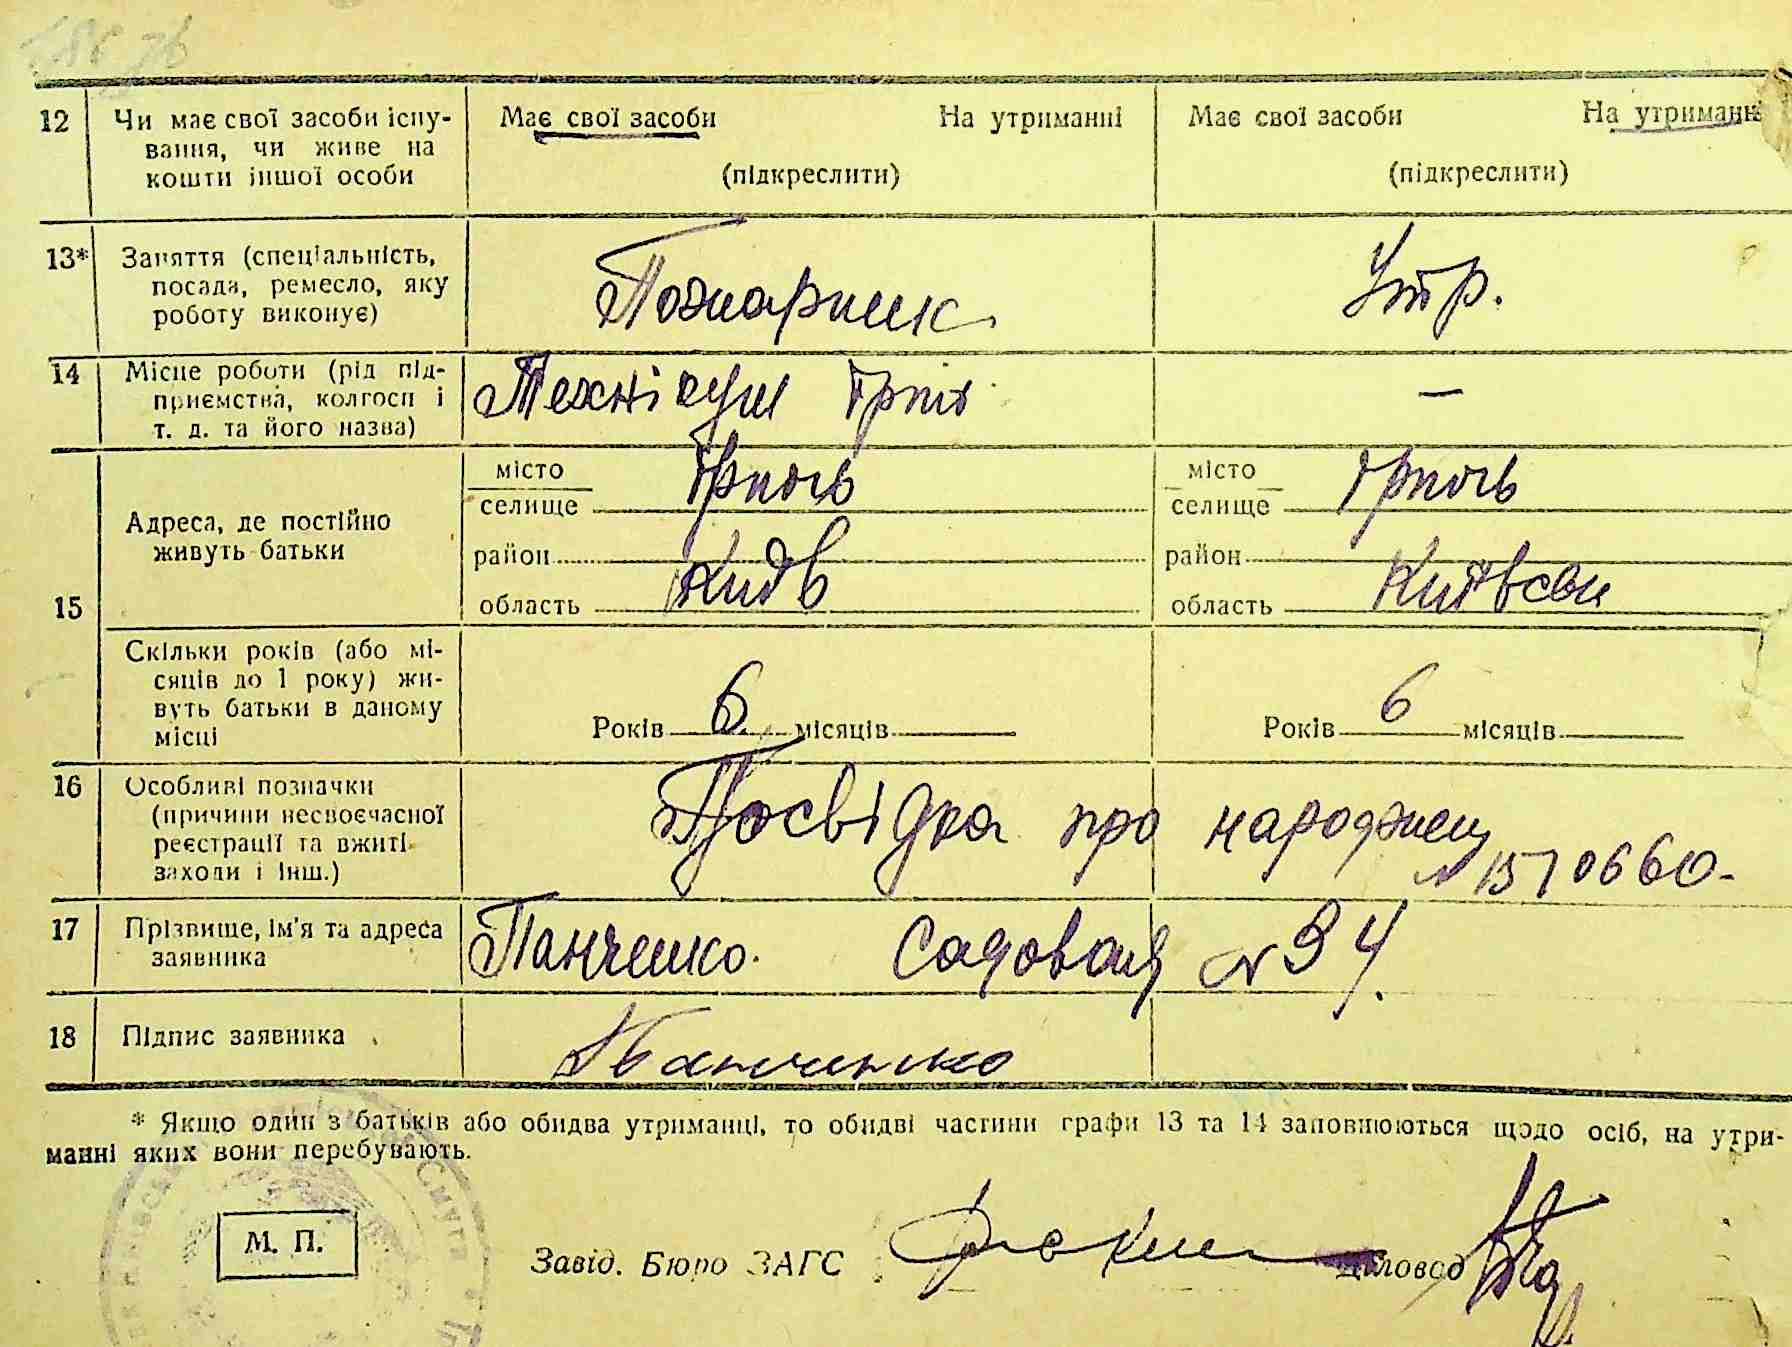 12 Чи має свої засоби існу- Має свої засоби На утриманні Має свої засоби На утриманні
вання, чи живе на
кошти іншої особи (підкреслити) (підкреслити)
13* Заняття (спеціальність,
посада, ремесло, яку Пожарник Утр.
роботу виконує)
14 Місце роботи (рід під-
приємства, колгосп і Технікум Ірпін —
т. д. та його назва)
місто Ірпень місто Ірпень
селище селище
Адреса, де постійно
живуть батьки район район
15 область Київ область Київськ
Скільки років (або мі-
сяців до 1 року) жи-
вуть батьки в даному Років 6 місяців Років 6 місяців
місці
16 Особливі позначки
(причини несвоєчасної Посвідка про народжен
реєстрації та вжиті
заходи і інш.) № 1570660-
17 Прізвище, ім'я та адреса Панченко. Садовая № 94.
заявника
18 Підпис заявника Панченко
* Якщо один з батьків або обидва утриманці, то обидві частини графи 13 та 14 заповнюються щодо осіб, на утри-
манні яких вони перебувають.
Смуга
М. П.
Завід. Бюро ЗАГС Діловод